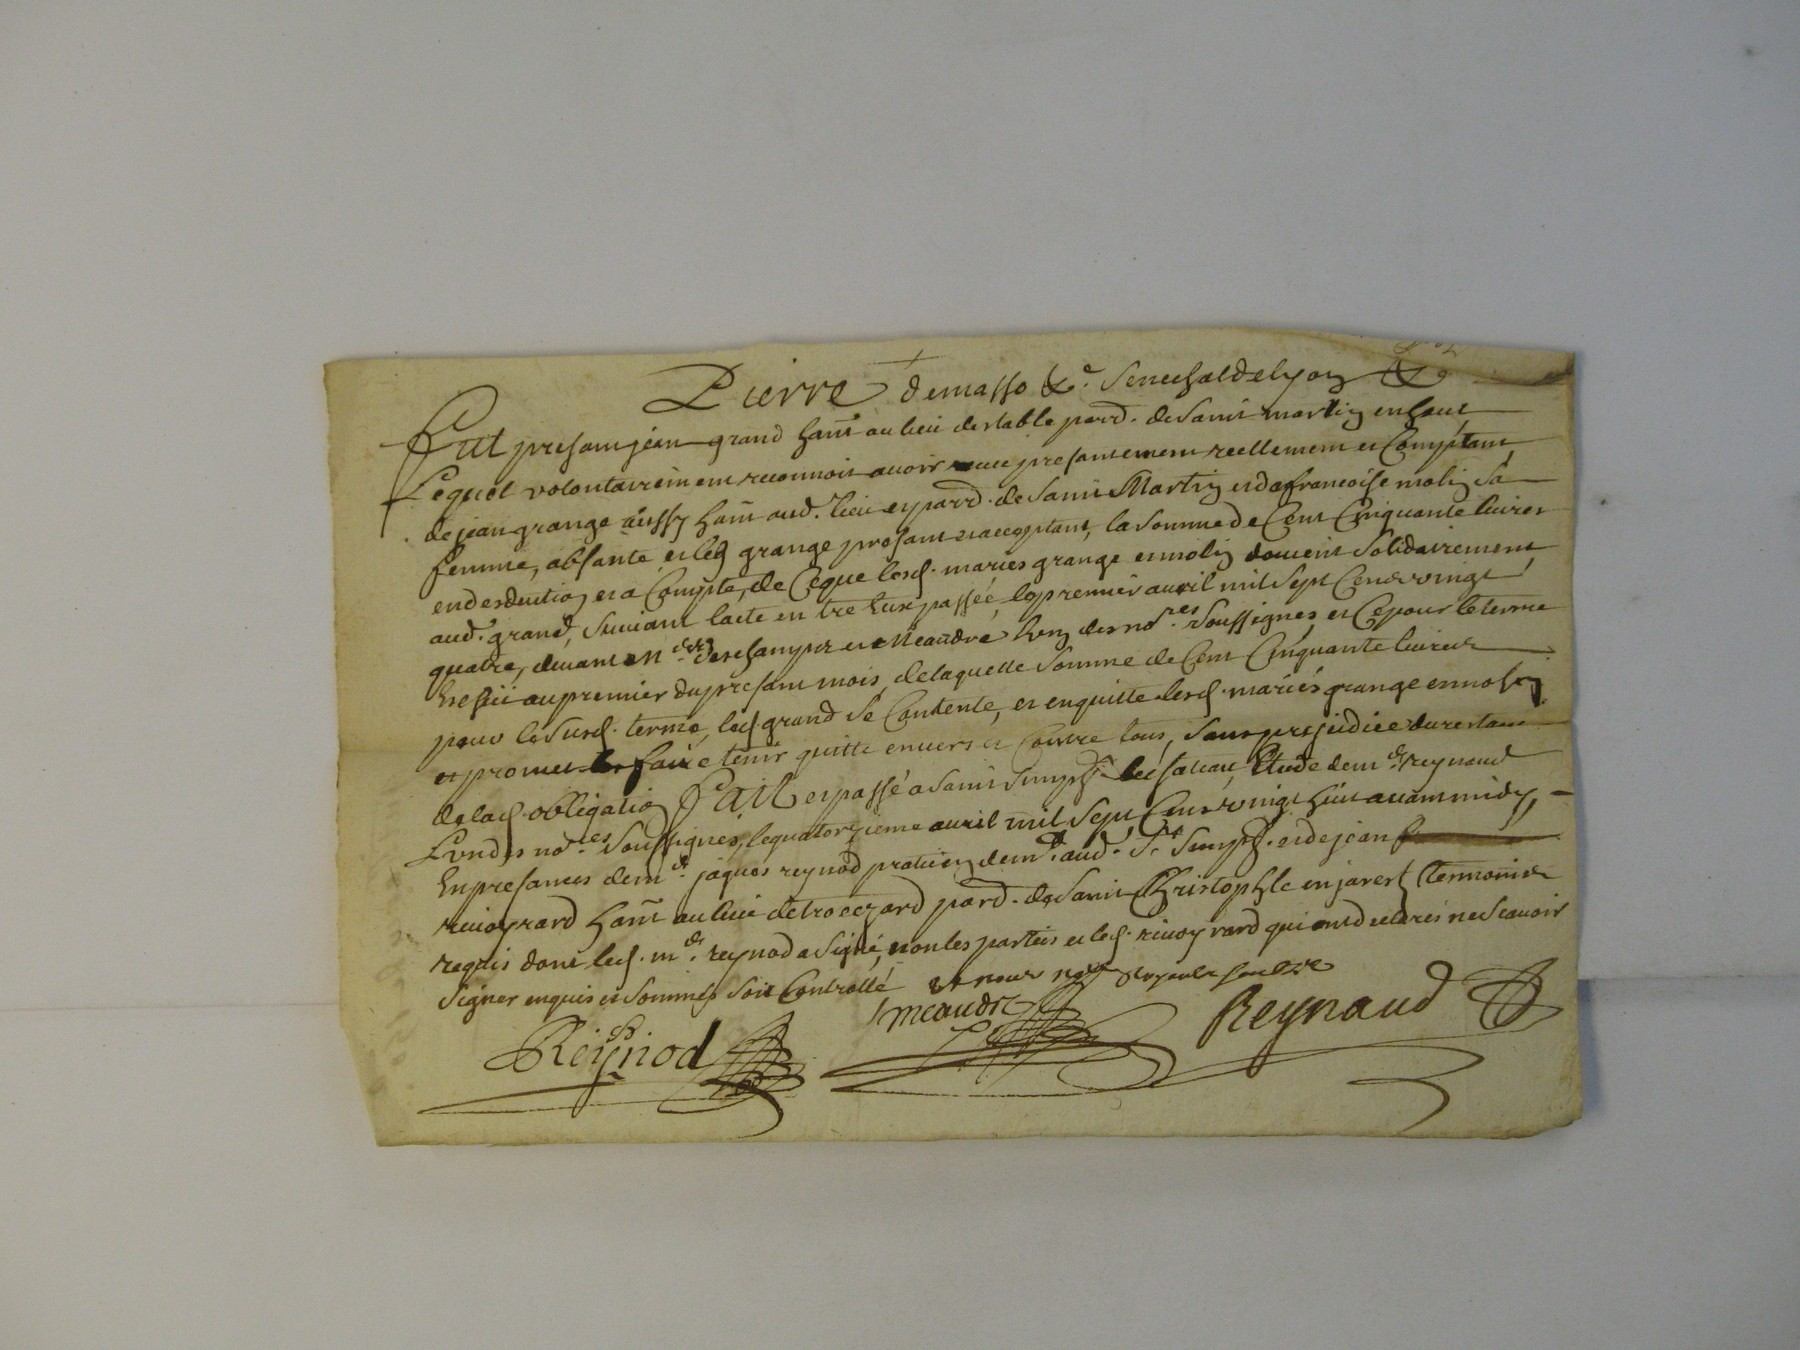 Pierre demasso &c. Senechal de lyon &c
Fut presant jean grand hant au lieu destable parr. de Saint martin en haut
Lequel volontairement reconnoit avoir receu presantement reellement et Comptant
de jean grange aussy hant aud. lieu et parr. de Saint Martin et de francoise molin Sa
femme, absante et led grange presant et acceptant, la Somme de Cent Cinquante livres
en desduction et a Compte, de Ceque lesd. maries grange et molin doivent Solidairement
aud. grand, Suivant lacte entre Eux passé, le premier avril mil Sept Cent vingt
quatre, devant Mes deschamps et Meaudre lun des nores Soussignes, et Ce pour le terme
Escheu au premier du presant mois, de laquelle Somme de Cent Cinquante livres
pour le Susd. terme, led. grand Se Contente, et en quitte lesd. mariés grange et molin
et promet les faire tenir quitte envers et Contre tous, Sans prejudice du restant
de lad. obligation Fait et passé a Saint Simph. le chateau Etude de me reynaud
Lun des nores Soussignes, le quatorzieme avril mil Sept Cent vingt huit avant midy,
En presances de me. jaques reynod praticien demt. aud. St. Simph. et de jean
rivoyrard hant au lieu de parr. de Saint Christophle en jarest temoins
requis dont led. me. reynod a Signé, non les parties et led. rivoyrard qui ont declarés ne Scavoir
Signer enquis et Sommés Soit Controllé et nous nores
Reynod
meaudre
Reynaud